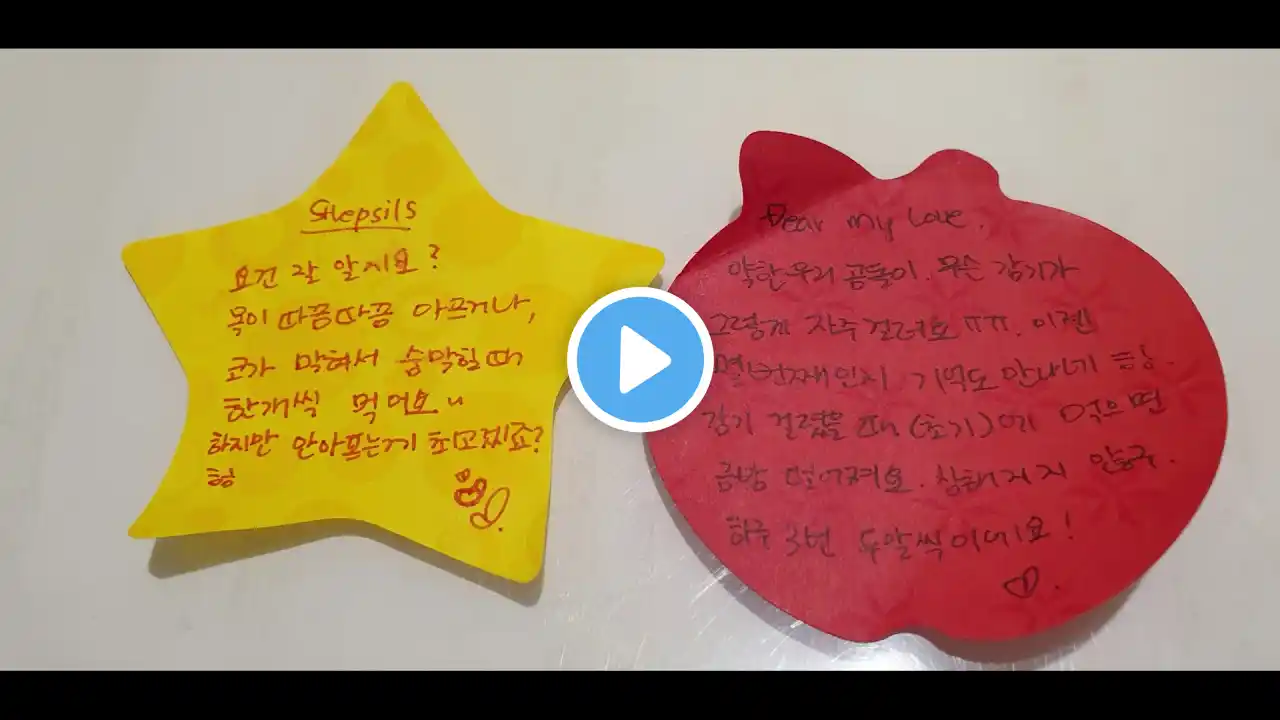 Strepsils
요건 잘 알지요?
목이 따끔따끔 아프거나,
코가 막혀서 숨막힐때
한개씩 먹어요
하지만 안아프는게 최고겠죠?
흥
Dear my Love.
약한 우리 곰돌이. 무슨 감기가
그렇게 자주 걸려요 ㅠㅠ. 이젠
몇번째인지 기억도 안나네 흥.
감기 걸렸을 때 (초기)에 먹으면
금방 떨어져요.
하루 3번 두알씩이에요!